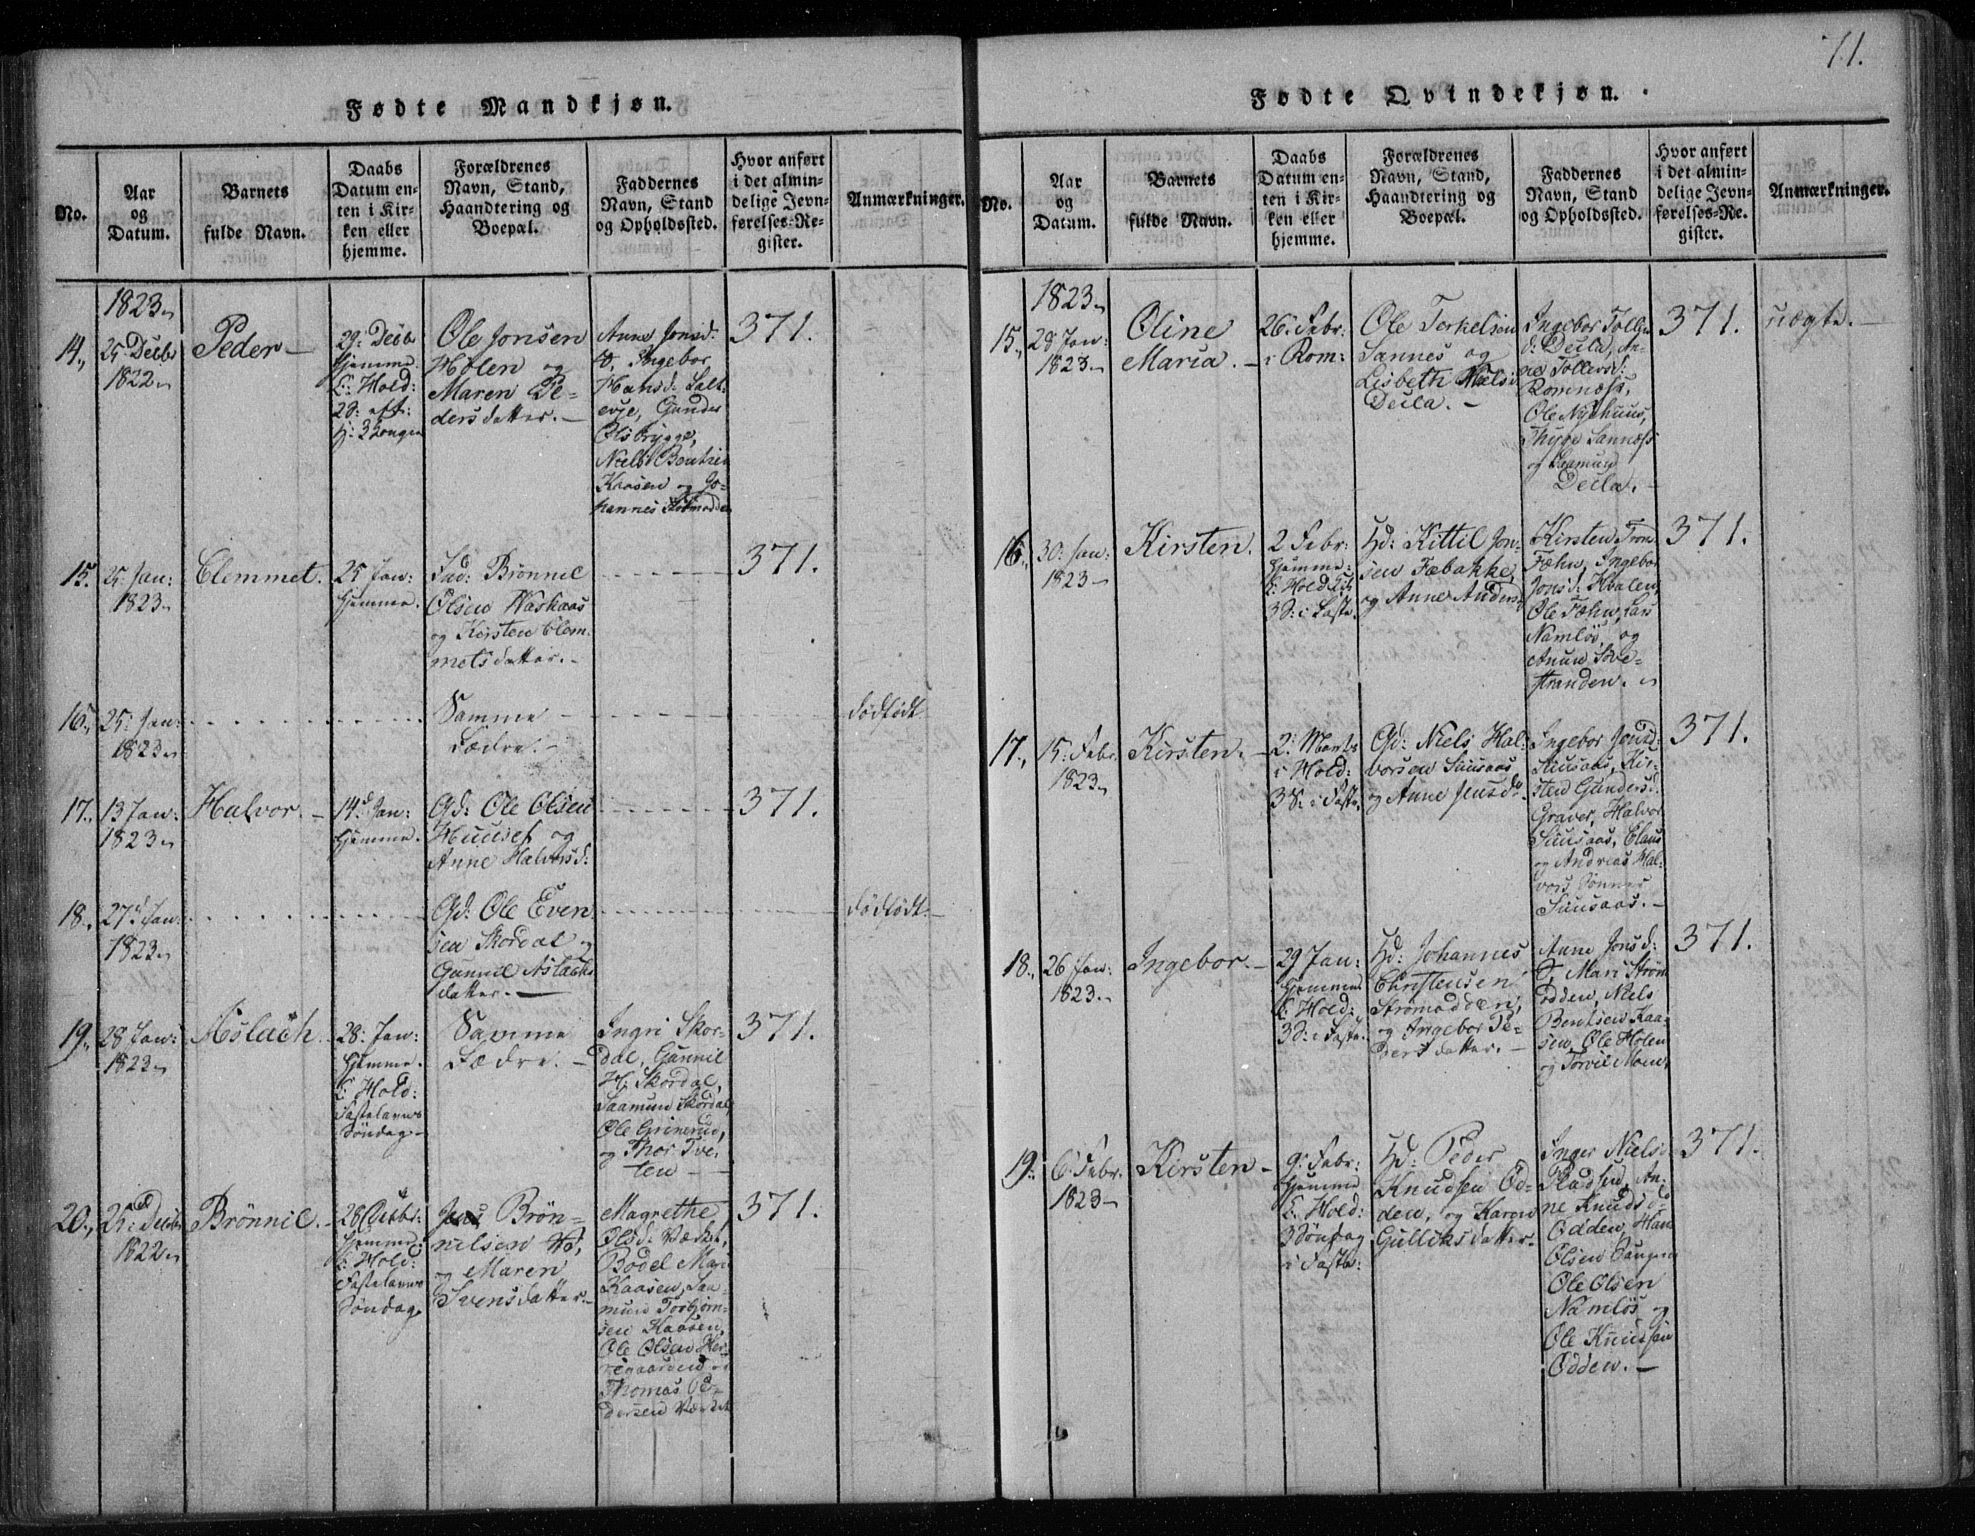 71.
Fødte Mandkjøn.
No.
Aar
og
Datum.
Barnets
fulde Navn.
Daabs
Datum en-
ten i Kir-
ken eller
hjemme.
Forældrenes
Navn, Stand,
Haandtering og
Boepæl.
Faddernes
Navn, Stand
og Opholdssted.
Hvor anført
i det almin-
delige Jevn-
førelses-Re-
gister.
Anmærkninger.
1823
14.
25 Decbr
1822
Peder
29: Decb
hjemme
i Hold:
2 S: eft:
H: 3 Konger
Ole Jonsen
Holen og
Maren Pe-
dersdatter.
Anne Jonsd:
Ingebor
Hansd:
Gunder
Olsbrygge,
Niels Bentsen
Kaasen og Jo-
hannes
371.
15.
25: Jan:
1823
Clemmet.
25 Jan:
hjemme.
Ind: Brønnil
Olsen Waskaas
og Kirsten Clem-
metsdatter.
371.
16.
25: Jan:
1823
Samme
Fædre.
dødfødt
17.
13 Jan:
1823
Halvor.
14d Jan:
hjemme.
Gd: Ole Olsen
Huuset og
Anne Halvorsd:
371.
18.
27d Jan:
1823
Gd: Ole Even-
sen Skordal og
Gunnil Aslachs-
datter.
dødfødt.
19.
28 Jan:
1823
Aslach
28: Jan:
hjemme.
i Hold:
Fastelavns
Søndag
Samme
Fædre.
Ingri Skor-
dal, Gunnil
H: Skordal,
Saamund Skordal,
Ole Grinerud,
og Thor Tve-
ten
371.
20.
25: Decbr
1822
Brønnil.
28 Decbr:
hjemme:
i Hold:
Fastelavns
Søndag.
Jens Brøn-
nilsen
og Maren
Svensdatter.
Magrethe
Olsd:
Bodel Mari
Kaasen, Saa-
mund Torbjørn-
sen Kaasen,
Ole Olsen Her-
regaarden og
Thomas Pe-
dersen
371.
Fødte Qvindekjøn.
No.
Aar
og
Datum.
Barnets
fulde Navn.
Daabs
Datum en-
ten i Kir-
ken eller
hjemme.
Forældrenes
Navn, Stand,
Haandtering og
Boepæl.
Faddernes
Navn, Stand
og Opholdssted.
Hvor anført
i det almin-
delige Jevn-
førelses-Re-
gister.
Anmærkninger.
1823
15.
28 Jan:
1823
Oline
Maria.
26: Febr:
i Rom:
Ole Terkelsen
Sannes og
Lisbeth Nielsd
Deila.
Ingebor Tollef
d: Deila, An-
ne Tollefsd:
Romnæss,
Ole Nyehuus,
Thyge Sannæss
og Saamund
Deila.
371.
uægte.
16.
30: Jan:
1823
Kirsten.
2 Febr:
hjemme:
i Hold: Kk
3 S: i Faste.
Hd: Kittil Jon-
sen Fæbakke,
og Anne Anders
Kirsten
Fæhn, Ingebor
Jonsd: Hvalen,
Ole Fæhn, Lars
Namløs, og
Anun Sve-
stranden.
371.
17.
15: Febr
1823
Kirsten.
2: Marts
i Hold:
3 S: i Faste.
Gd: Niels Hal-
vorsen Suusaas
og Anne Jensd
Ingebor Jensd:
Suusaas, Kir-
sten Gundersd:
Graver, Halvor
Suusaas, Claus
og Andreas Hal-
vors Sønner
Suusaas.
371.
18.
26 Jan:
1823.
Ingebor.
29 Jan:
hjemme
i Hold:
3 S: i Faste.
Hd: Johannes
Christensen
Strømodden,
og Ingebor Pe-
dersdatter.
Anne Jonsd:
Mari Strøm-
odden, Niels
Bentsen Kaa-
sen, Ole Holen
og Torvil Moen.
371.
19.
6: Febr.
1823
Kirsten
9: Febr:
hjemme
i Hold:
3 Søndag
i Faste:
Hd: Peder
Knudsen Od-
den, og Karen
Gulliksdatter.
Inger Nielsd
An-
ne Knudsd:
Odden, Hans
Olsen
Ole Olsen
Namløs og
Ole Knudsen
Odden.
371.